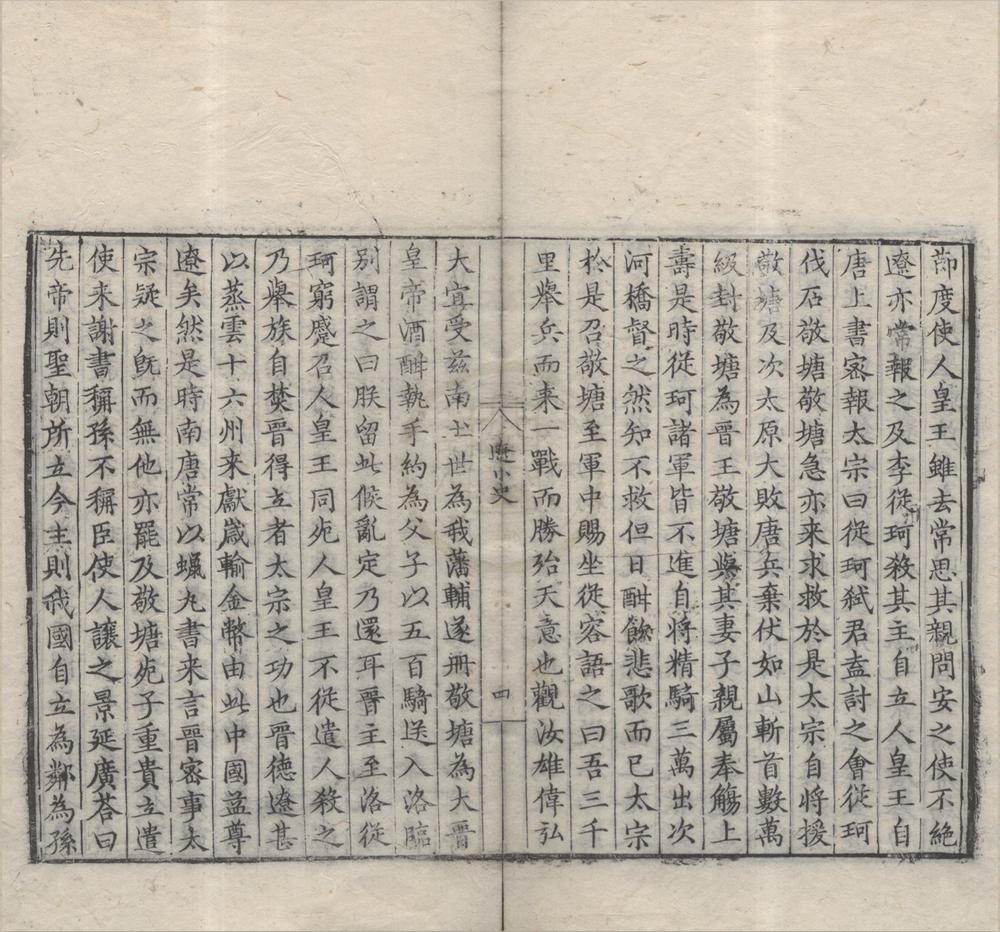 節度使人皇王雖去常思其親問安之使不絕
遼亦常報之及李從珂殺其主自立人皇王自
唐上書密報太宗曰從珂弒君盍討之會從珂
伐石敬塘敬塘急亦来求救於是太宗自將援
敬塘及次太原大敗唐兵棄伏如山斬首數萬
級封敬塘為晉王敬塘與其妻子親屬奉觴上
壽是時從珂諸軍皆不進自將精騎三萬出次
河橋督之然知不救但日酣飲悲歌而已太宗
於是召敬塘至軍中賜坐從容語之曰吾三千
里舉兵而来一戰而勝殆天意也觀汝雄偉弘
遼小史
四
大宜受茲南土世為我藩輔遂冊敬塘為大晉
皇帝酒酣執手約為父子以五百騎送入洛臨
別謂之曰朕留此候亂定乃還耳晉主至洛從
珂窮蹙召人皇王同死人皇王不從遣人殺之
乃舉族自焚晉得立者太宗之功也晉德遼甚
以燕雲十六州来獻歲輸金幣由此中國益尊
遼矣然是時南唐常以蠟丸書来言晉密事太
宗疑之既而無他亦罷及敬塘死子重貴立遣
使来謝書稱孫不稱臣使人讓之景延廣荅曰
先帝則聖朝所立今主則我國自立為鄰為孫